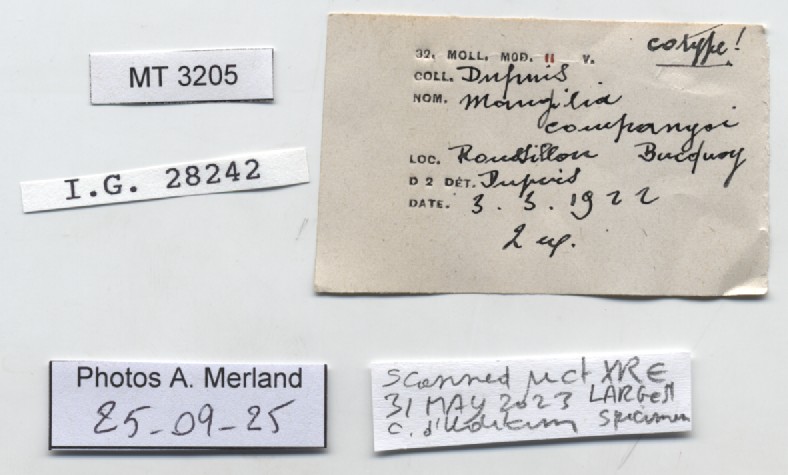 MT 3205
I.G. 28242
cotype!
32. MOLL. MOD. II V.
COLL. Dupuis
NOM. Mangilia
companyoi
LOC. Roussillon Bucquoy
D 2 DÉT. Dupuis
DATE. 3.3.1922
2 ex.
Photos A. Merland
25-09-25
scanned µct XRE
31 MAY 2023 LARGEST
specimen